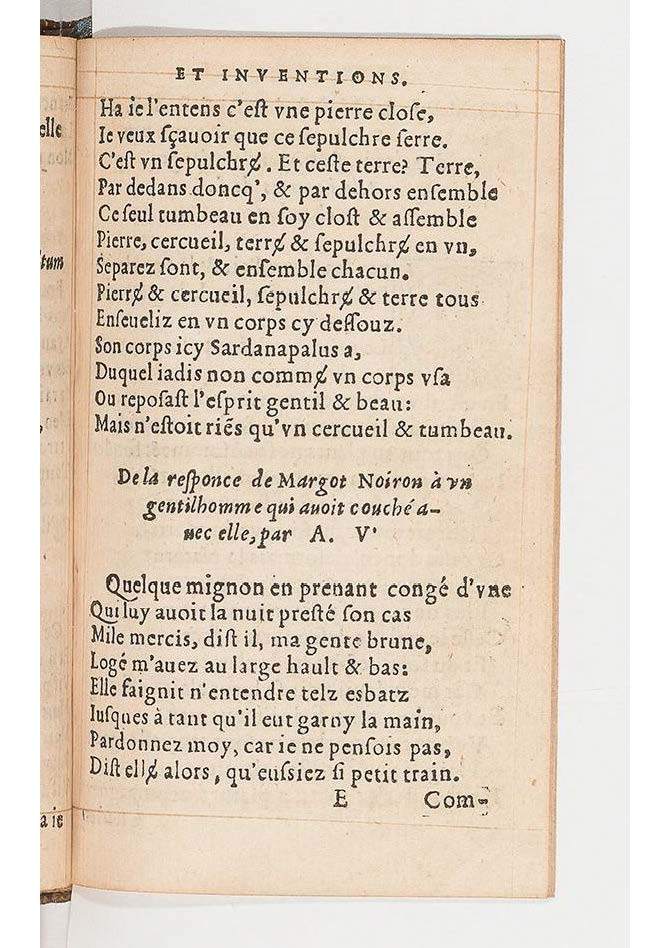 ET INVENTIONS.
Ha ie l'entens c'eſt vne pierre cloſe,
Ie veux ſçauoir que ce ſepulchre ſerre.
C'eſt vn ſepulchrɇ. Et ceſte terre? Terre,
Par dedans doncq', & par dehors enſemble
Ce ſeul tumbeau en ſoy cloſt & aſſemble
Pierre, cercueil, terrɇ & ſepulchrɇ en vn,
Separez ſont, & enſemble chacun.
Pierrɇ & cercueil, ſepulchrɇ & terre tous
Enſeueliz en vn corps cy deſſouz.
Son corps icy Sardanapalus a,
Duquel iadis non commɇ vn corps vſa
Ou repoſaſt l'eſprit gentil & beau:
Mais n'eſtoit riẽs qu'vn cercueil & tumbeau.
De la reſponce de Margot Noiron à vn
gentilhomme qui auoit couché a-
uec elle, par A. V'
Quelque mignon en prenant congé d'vne
Qui luy auoit la nuit preſté ſon cas
Mile mercis, diſt il, ma gente brune,
Logé m'auez au large hault & bas:
Elle faignit n'entendre telz esbatz
Iuſques à tant qu'il eut garny la main,
Pardonnez moy, car ie ne penſois pas,
Diſt ellɇ alors, qu'euſsiez ſi petit train.
E Com-
elle
tum
a ie